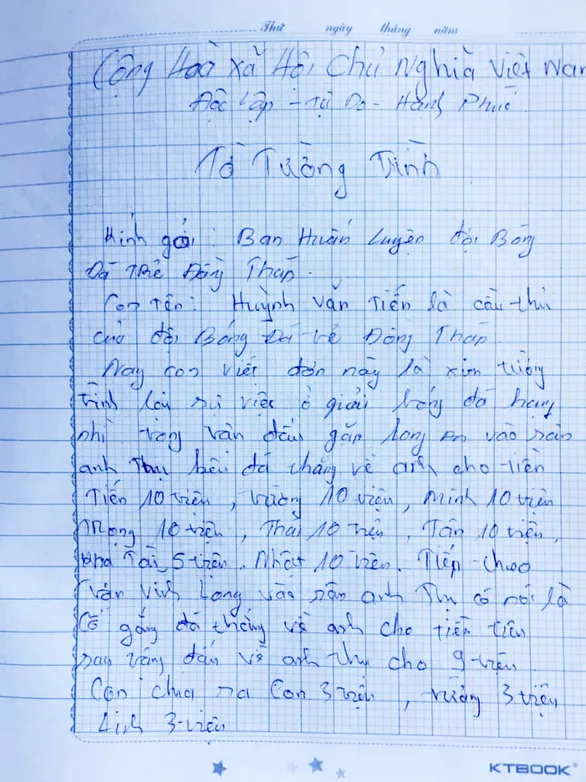 Thứ ngày tháng năm
Cộng Hoà Xã Hội Chủ Nghĩa Việt Nam
Độc Lập - Tự Do - Hạnh Phúc
Tờ Tường Trình
Kính gởi : Ban Huấn Luyện đội Bóng
Đá Trẻ Đồng Tháp.
Con tên : Huỳnh Văn Tiến là cầu thủ
của đội Bóng Đá Đồng Tháp.
Nay con viết đơn này là xin tường
trình lại sự việc ở giải bóng đá hạng
nhì trong trận đấu gặp Long An vào sân
anh Thu bểu đá thắng về anh cho tiền
Tiến 10 triện, Trường 10 triện, Minh 10 triện
Trọng 10 triện, Thái 10 triện, Tấn 10 triện,
Kha 5 triện, Nhật 10 triện. Tiếp theo
trận Vĩnh Long vào sân anh Thu có nói là
Cố gắng đá thắng về anh cho tiền tiêu
sau trận đấu về anh Thu cho 9 triện
Con chia ra Con 3 triện, Trường 3 triện
Linh 3 triện
KTBOOK